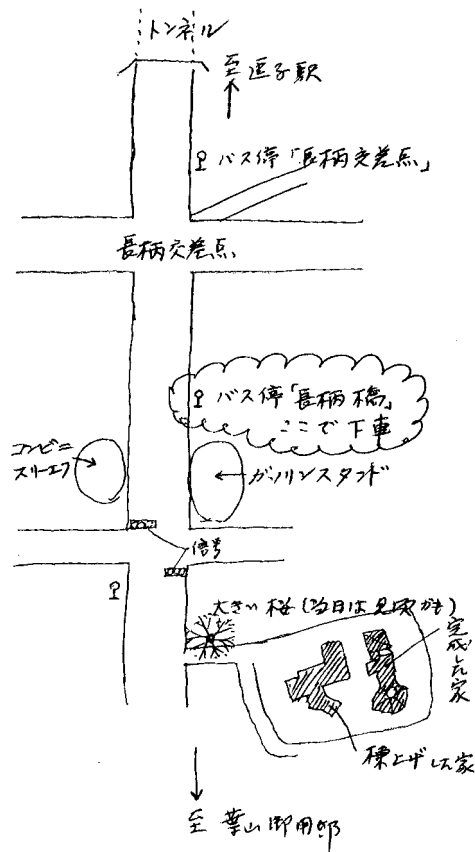 トンネル
至 逗子駅
バス停「長柄交差点」
長柄交差点
バス停「長柄橋」
ここで下車
コンビニ
スリーエフ
ガソリンスタンド
信号
大きい桜(当日は見頃かも)
完成した家
棟上げした家
至 葉山御用邸